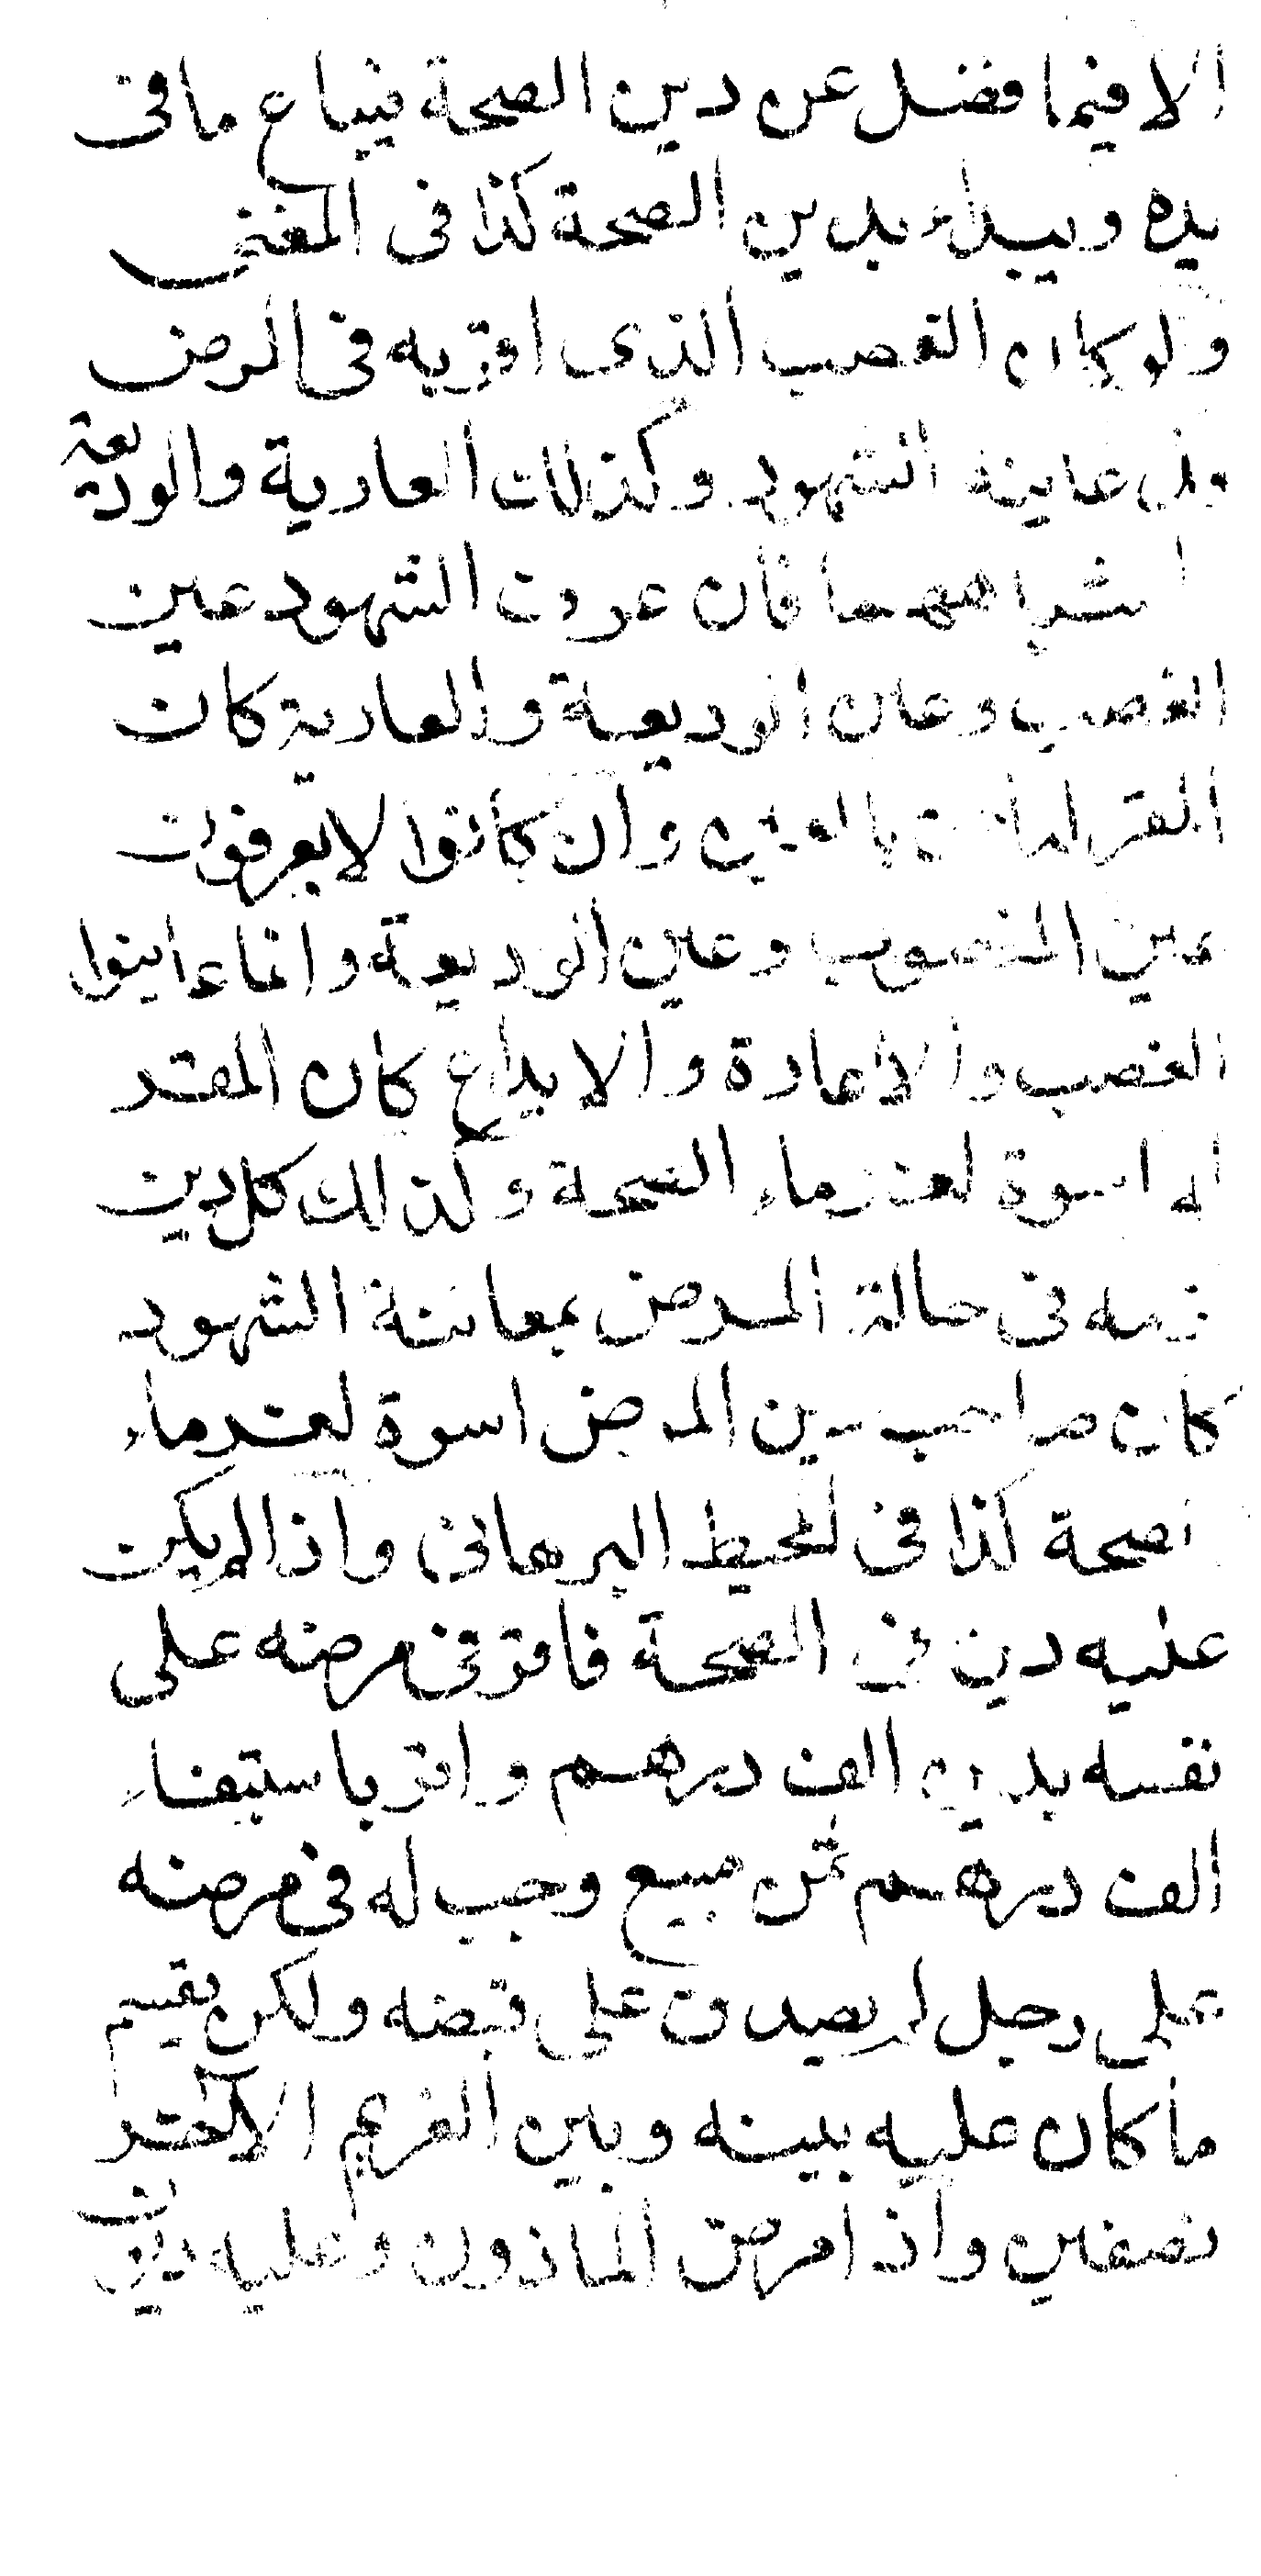 الا فيما فضل عن دين الصحة فيباع ما فى
يده ويبدأ بدين الصحة كذا فى المغنى
ولو كان الغصب الذى اقر به فى المرض
عاينه الشهود وكذلك العارية والوديعة
فان عرف الشهود عين
الغصب وعين الوديعة والعارية كان
المقر له بالعين وان كانوا لا يعرفون
عين المغصوب وعين الوديعة وانما عاينوا
الغصب والاعارة والايداع كان المقر
له اسوة لغرماء الصحة وكذلك كل دين
لزمه فى حالة المرض بمعاينة الشهود
كان صاحب دين المرض اسوة لغرماء
الصحة كذا فى المحيط البرهانى واذا لم يكن
عليه دين فى الصحة فاقر فى مرضه على
نفسه بدين الف درهم واقر باستيفاء
الف درهم ثمن مبيع وجب له فى مرضه
على رجل لم يصدق على قبضه ولكن يقسم
ما كان عليه بينه وبين الغريم الاخر
نصفين واذا مرض الماذون وعليه دين